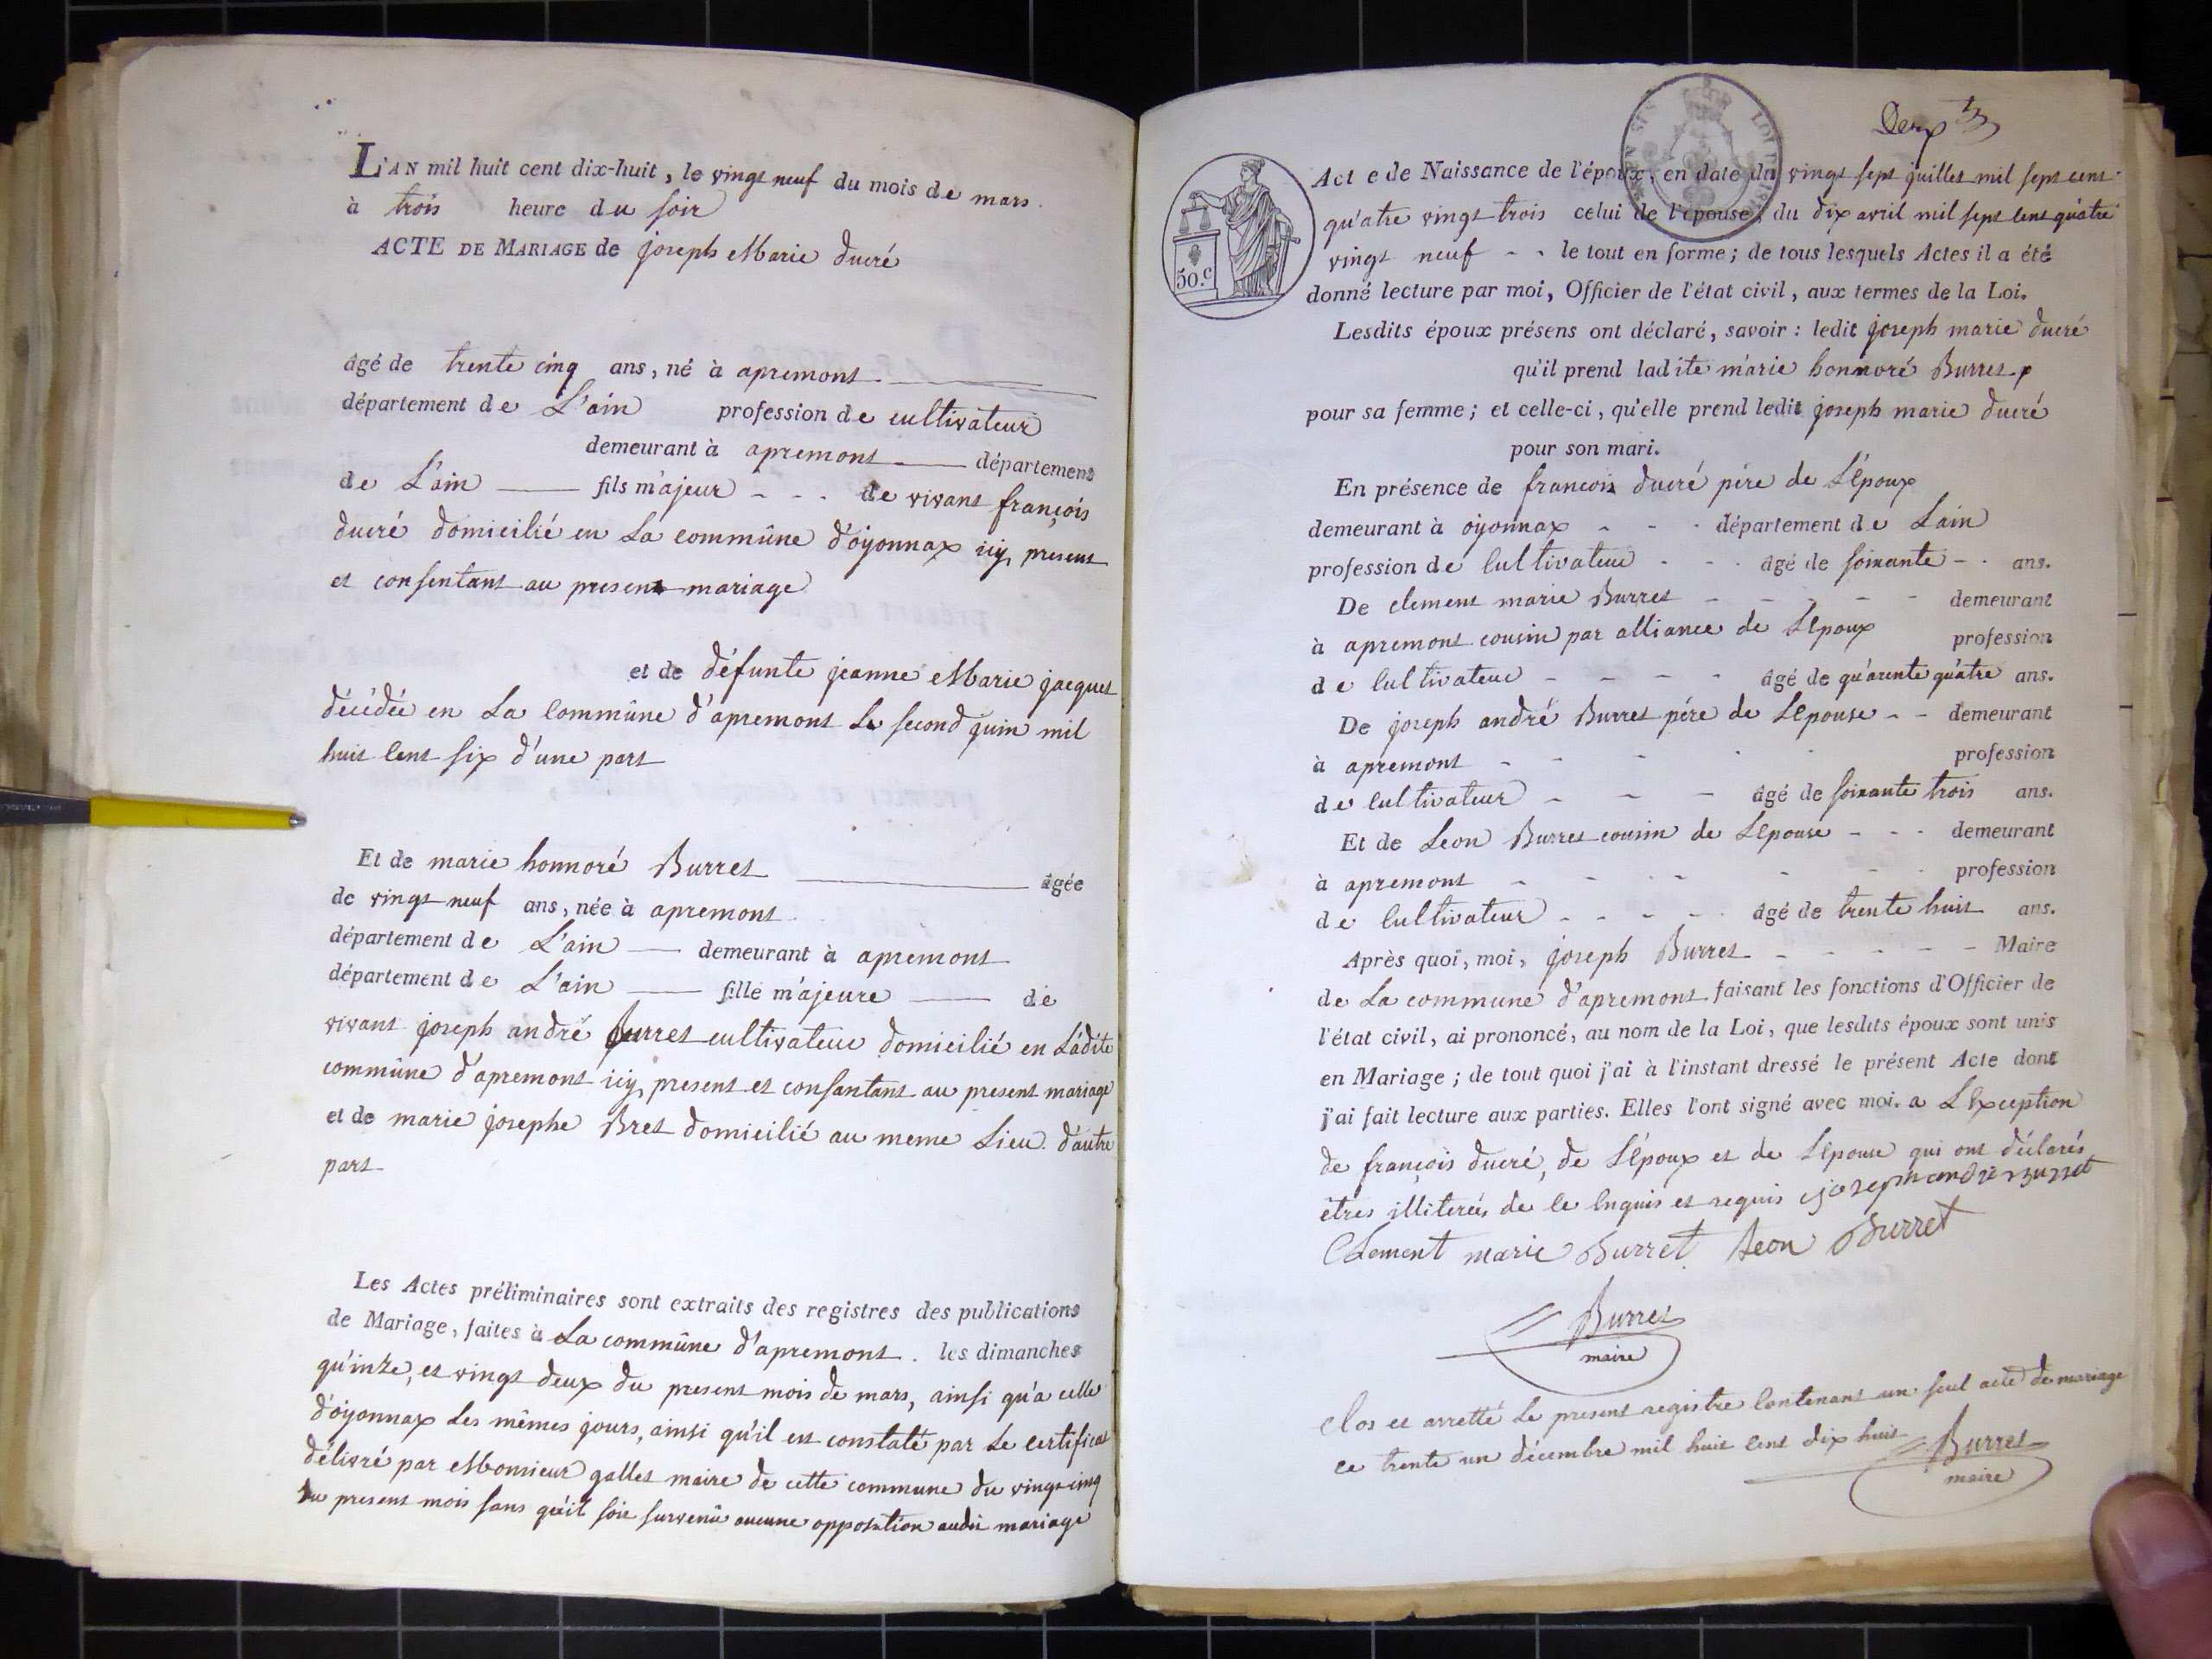 L'AN mil huit cent dix-huit, le vingt neuf du mois de mars
à trois heure du soir
ACTE DE MARIAGE de joseph Marie ducré
âgé de trente cinq ans, né à apremont
département de L'ain profession de cultivateur
demeurant à apremont département
de L'ain fils m'ajeur - - - de vivant françois
ducré domicilié en La commûne d'oÿonnax icÿ present
et consentant au present mariage
et de défunte jeanne Marie jacquet
décédée en La Commûne d'apremont Le second juin mil
huit Cent six d'une part
Et de marie honnoré Burret âgée
de vingt neuf ans, née à apremont
département de L'ain demeurant à apremont
département de L'ain fille m'ajeure de
vivant joseph andré Burret cultivateur domicilié en Ladite
commûne d'apremont icÿ present et consantant au present mariage
et de marie josephe Bret domicilié au meme Lieu d'autre
part
Les Actes préliminaires sont extraits des registres des publications
de Mariage, faites à La commûne d'apremont. les dimanches
qu'inze, et vingt deux du present mois de mars, ainsi qu'a celle
d'oÿonnax Les mêmes jours, ainsi qu'il est constaté par Le certificat
délivré par Monsieur gallet maire de cette commune du vingt cinq
du present mois sans qu'il soit survenû aucune opposition audit mariage
Deux
50.c
Acte de Naissance de l'époux, en date du vingt sept juillet mil sept cent
qu'atre vingt trois celui de l'épouse, du dix avril mil sept cent qu'atre
vingt neuf - - le tout en forme; de tous lesquels Actes il a été
donné lecture par moi, Officier de l'état civil, aux termes de la Loi.
Lesdits époux présens ont déclaré, savoir: ledit joseph marie ducré
qu'il prend ladite marie honnoré Burret
pour sa femme; et celle-ci, qu'elle prend ledit joseph marie ducré
pour son mari.
En présence de francois ducré pére de L'Epoux
demeurant à oÿonnax - - - département de Lain
profession de Cultivateur - - - âgé de soixante - - ans.
De clement marie Burret - - - - - demeurant
à apremont cousin par alliance de L'Epoux profession
de Cultivateur - - - - âgé de qu'arente qu'atre ans.
De joseph andré Burret pére de L'Epouse - - demeurant
à apremont - - - - profession
de Cultivateur - - - âgé de soixante trois ans.
Et de Leon Burret cousin de L'Epouse - - - demeurant
à apremont - - - - - - profession
de Cultivateur - - - - âgé de trente huit ans.
Après quoi, moi, joseph Burret - - - - - Maire
de La commune d'apremont faisant les fonctions d'Officier de
l'état civil, ai prononcé, au nom de la Loi, que lesdits époux sont unis
en Mariage; de tout quoi j'ai à l'instant dressé le présent Acte dont
j'ai fait lecture aux parties. Elles l'ont signé avec moi. a L'Exception
de françois ducré, de L'Epoux et de L'Epouse qui ont déclarés
êtres illiterés de ce Enquis et requis joseph andré Burret
Clement marie Burret Leon Burret
Burret
maire
Clos et arretté Le present registre Contenant un seul acte de mariage
ce trente un décembre mil huit cent dix huit Burret
maire